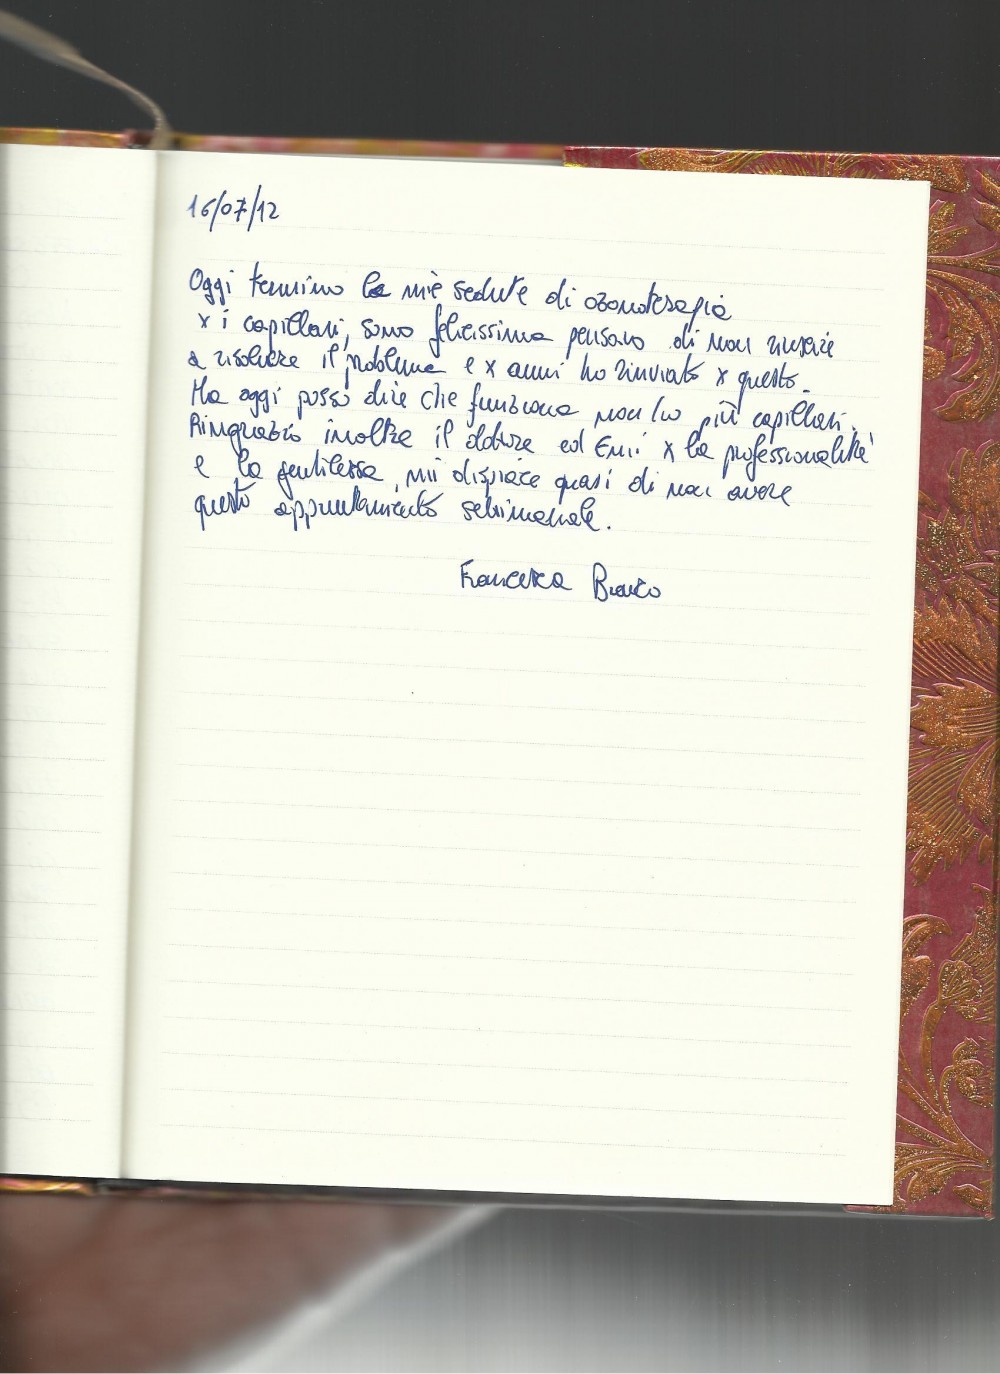 16/07/12
Oggi termino le mie sedute di ozonoterapia
x i capillari, sono felicissima pensavo di non riuscire
a risolvere il problema e x anni ho rinviato x questo.
Ma oggi posso dire che funziona non ho più capillari.
Ringrazio inoltre il dottore ed Emi x la professionalità
e la gentilezza, mi dispiace quasi di non avere
questo appuntamento settimanale.
Francesca